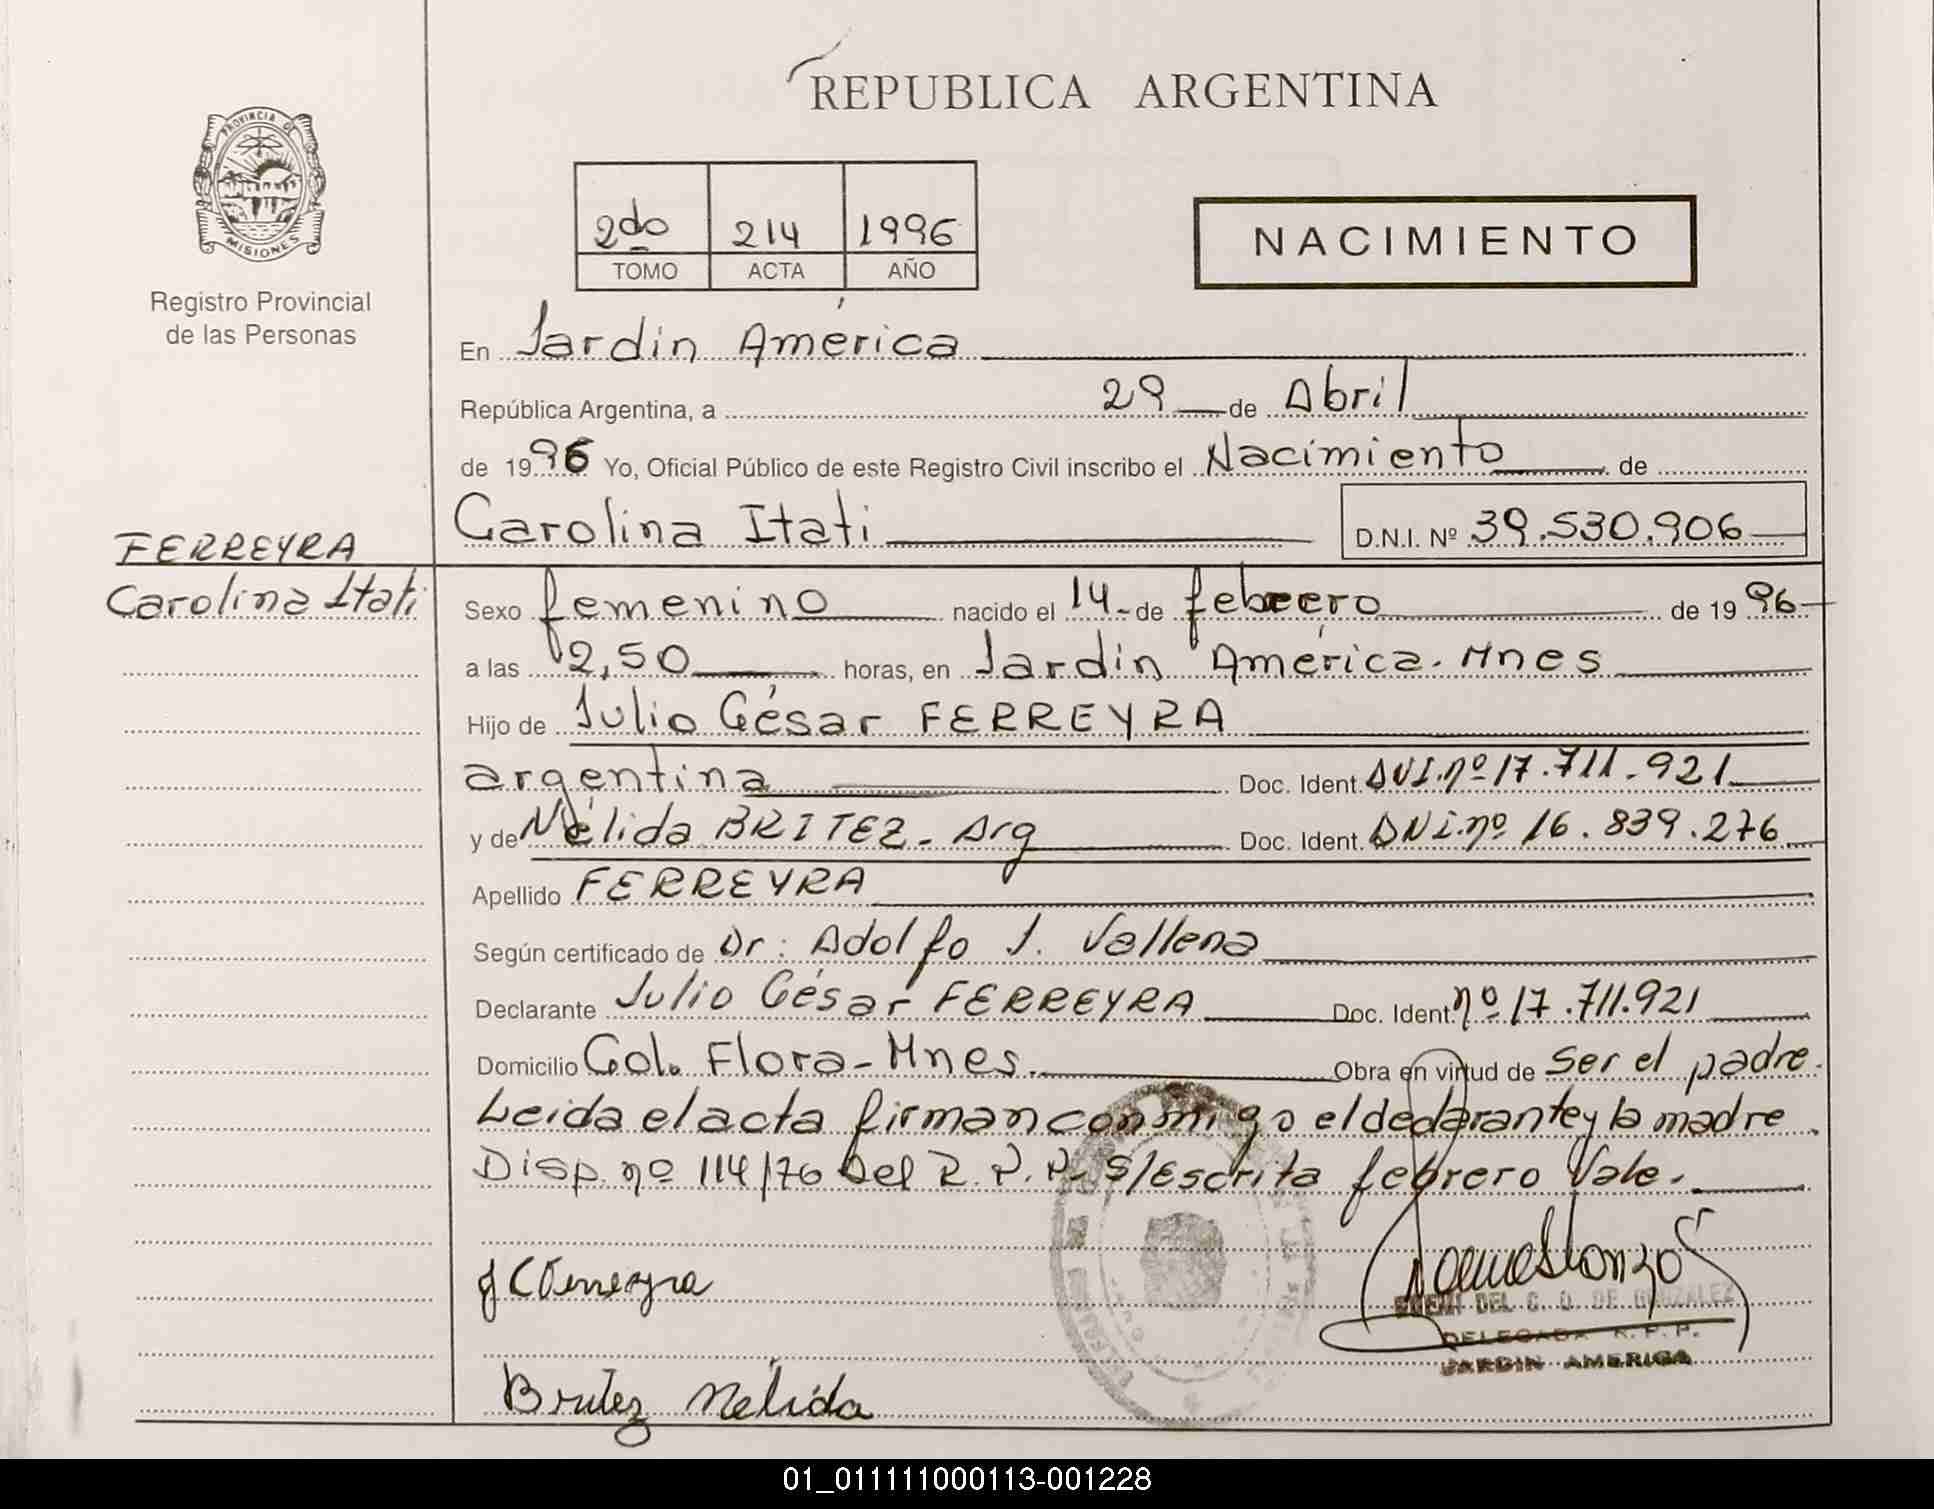 REPUBLICA ARGENTINA
PROVINCIA DE
MISIONES
Registro Provincial
de las Personas
2do 214 1996
TOMO ACTA AÑO
NACIMIENTO
En Jardín América
República Argentina, a 29 de Abril
de 1996 Yo, Oficial Público de este Registro Civil inscribo el Nacimiento de
Carolina Itati D.N.I. Nº 39.530.906
FERREYRA
Carolina Itati
Sexo femenino nacido el 14 de febrero de 1996
a las 12,50 horas, en Jardín América. Mnes
Hijo de Julio César FERREYRA
argentina Doc. Ident. DNI.nº 17.711.921
y de Nélida BRITEZ - Arg Doc. Ident. DNI.nº 16.839.276
Apellido FERREYRA
Según certificado de Dr: Adolfo J. Vallena
Declarante Julio César FERREYRA Doc. Ident. nº 17.711.921
Domicilio Col. Flora - Mnes. Obra en virtud de Ser el padre.
Leida el acta firman conmigo el declarante y la madre.
Disp. nº 114/76 Del R.P.P. S/Escrita febrero Vale.
J C Ferreyra
DEL C. O. DE GONZALEZ
DELEGADA R.P.P.
JARDIN AMERICA
Britez Nélida
01_011111000113-001228